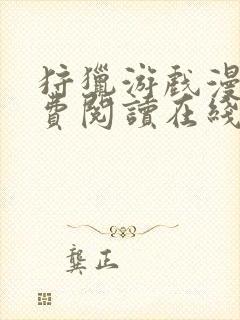 狩獵游戲漫
費閱讀在綫
龔正